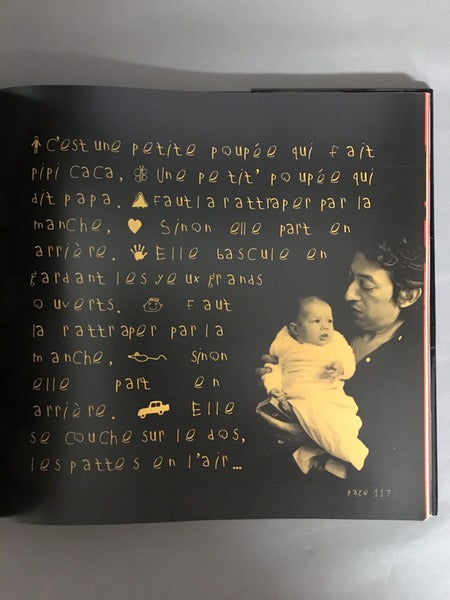 C'est une petite poupée qui fait
pipi caca, Une petit' poupée qui
dit papa. Faut la rattraper par la
manche, Sinon elle part en
arrière. Elle bascule en
gardant les yeux grands
ouverts. Faut
la rattraper par la
manche, sinon
elle part en
arrière. Elle
se couche sur le dos,
les pattes en l'air...
page 117